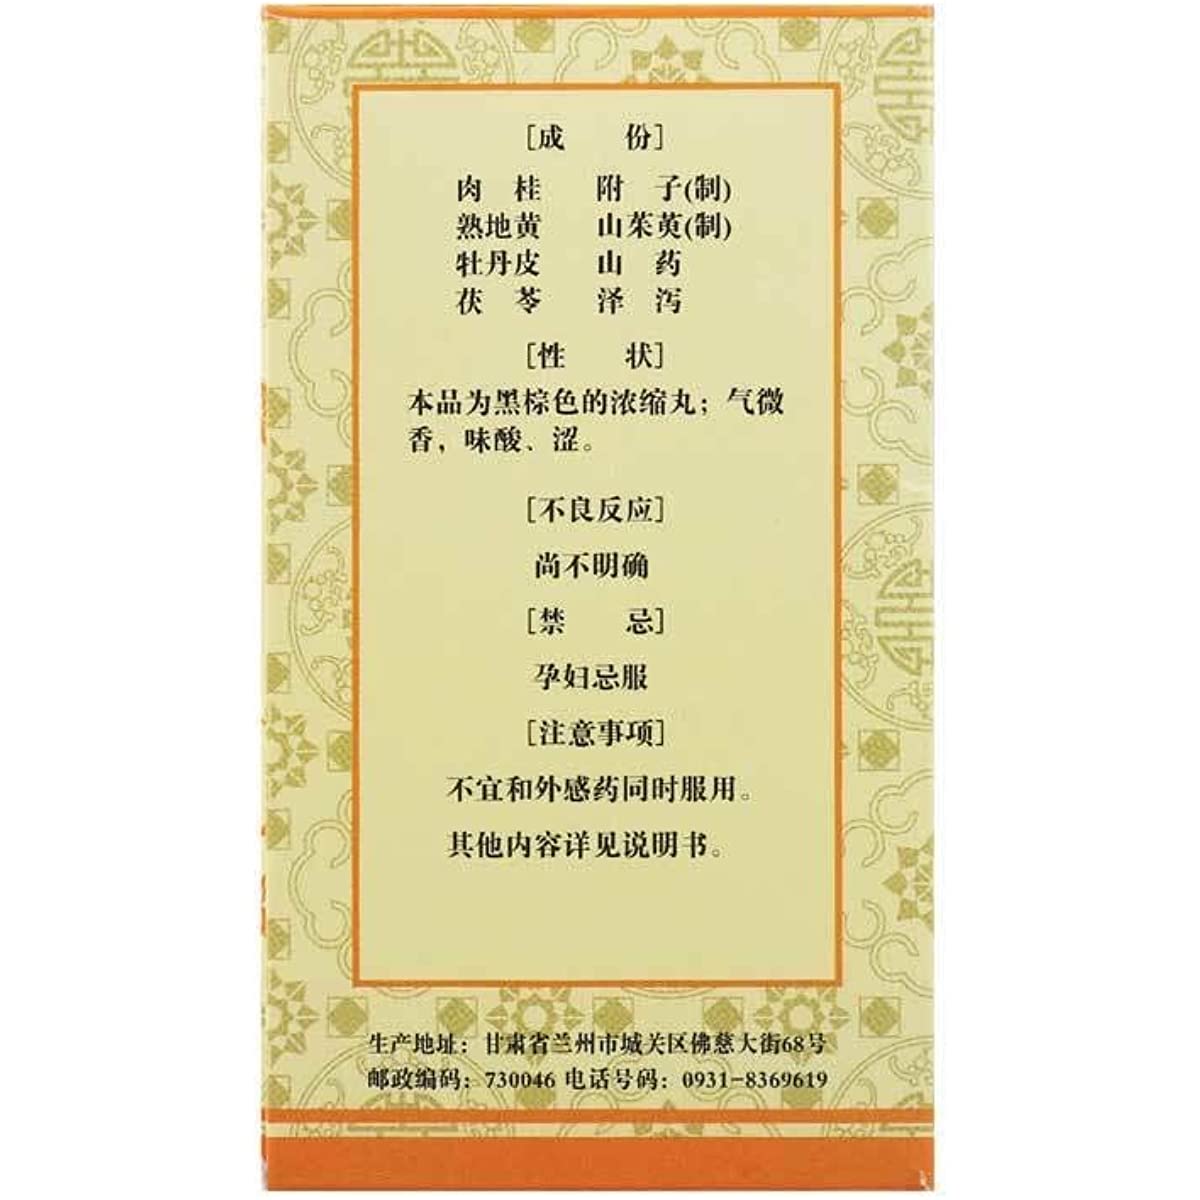 [成　　份]
肉　桂　　附　子(制)
熟地黄　　山茱萸(制)
牡丹皮　　山　药
茯　苓　　泽　泻
[性　　状]
本品为黑棕色的浓缩丸；气微
香，味酸、涩。
[不良反应]
尚不明确
[禁　　忌]
孕妇忌服
[注意事项]
不宜和外感药同时服用。
其他内容详见说明书。
生产地址：甘肃省兰州市城关区佛慈大街68号
邮政编码：730046 电话号码：0931-8369619